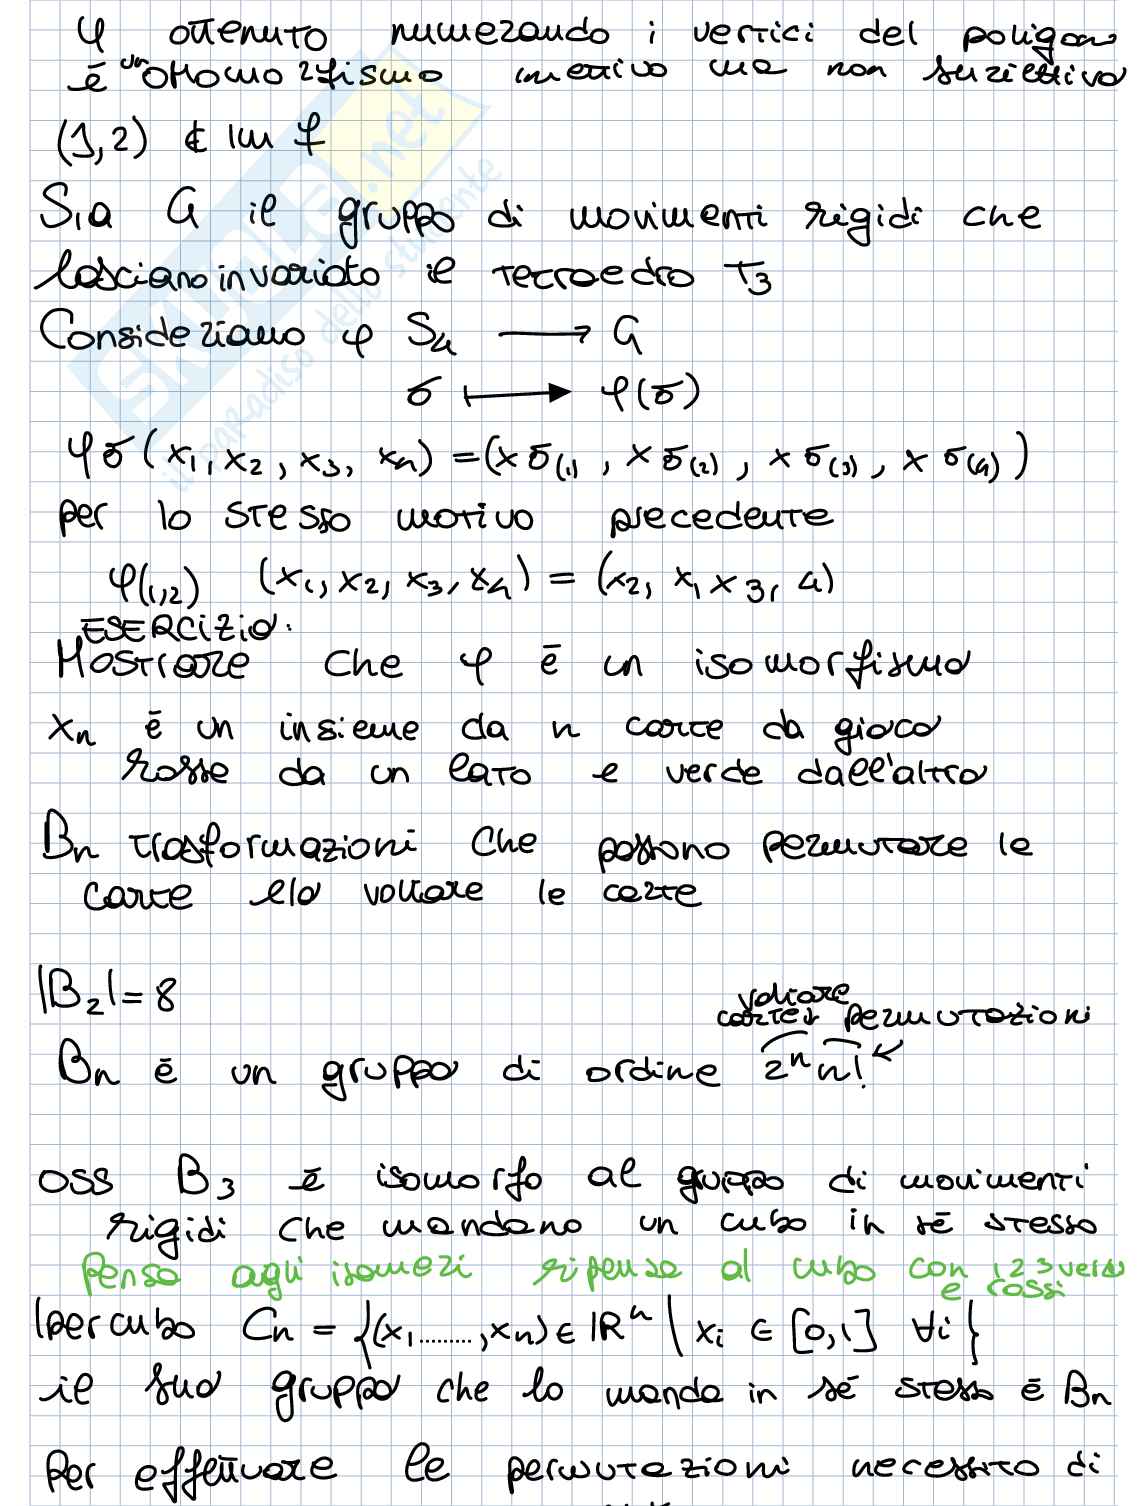 φ ottenuto numerando i vertici del poligono
è un omomorfismo iniettivo ma non suriettivo
(1,2) ∉ Im φ
Sia G il gruppo di movimenti rigidi che
lasciano invariato il tetraedro T3
Consideriamo φ S4 → G
σ ↦ φ(σ)
φσ(x1, x2, x3, x4) = (xσ(1), xσ(2), xσ(3), xσ(4))
per lo stesso motivo precedente
φ(1,2) (x1, x2, x3, x4) = (x2, x1 x3, 4)
ESERCIZIO.
Mostrare che φ è un isomorfismo
Xn è un insieme da n carte da gioco
rosse da un lato e verde dall'altro
Bn trasformazioni che possono permutare le
carte e/o voltare le carte
|B2| = 8
voltare
carte permutazioni
Bn è un gruppo di ordine 2^n n!
oss B3 è isomorfo al gruppo di movimenti
rigidi che mandano un cubo in sé stesso
Pensa agli isomezi ripensa al cubo con 1 2 3 verdi
e rossi
Ipercubo Cn = {(x1........,xn) ∈ ℝ^n | xi ∈ [0,1] ∀i}
il suo gruppo che lo manda in sé stesso è Bn
Per effettuare le permutazioni necessito di
SKUOLA.net
il paradiso dello studente